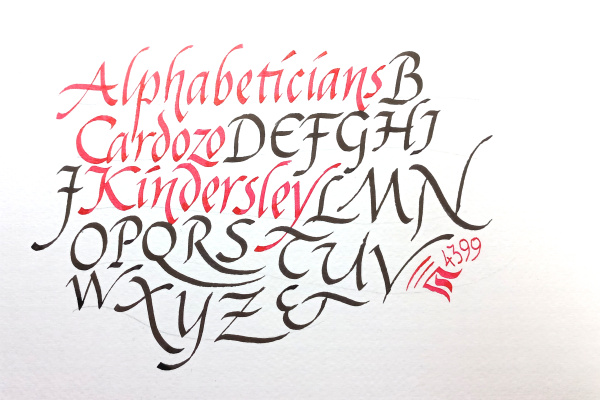 Alphabeticians B
Cardozo DEFGHI
J Kindersley LMN
OPQRSTUV
4399
WXYZ&